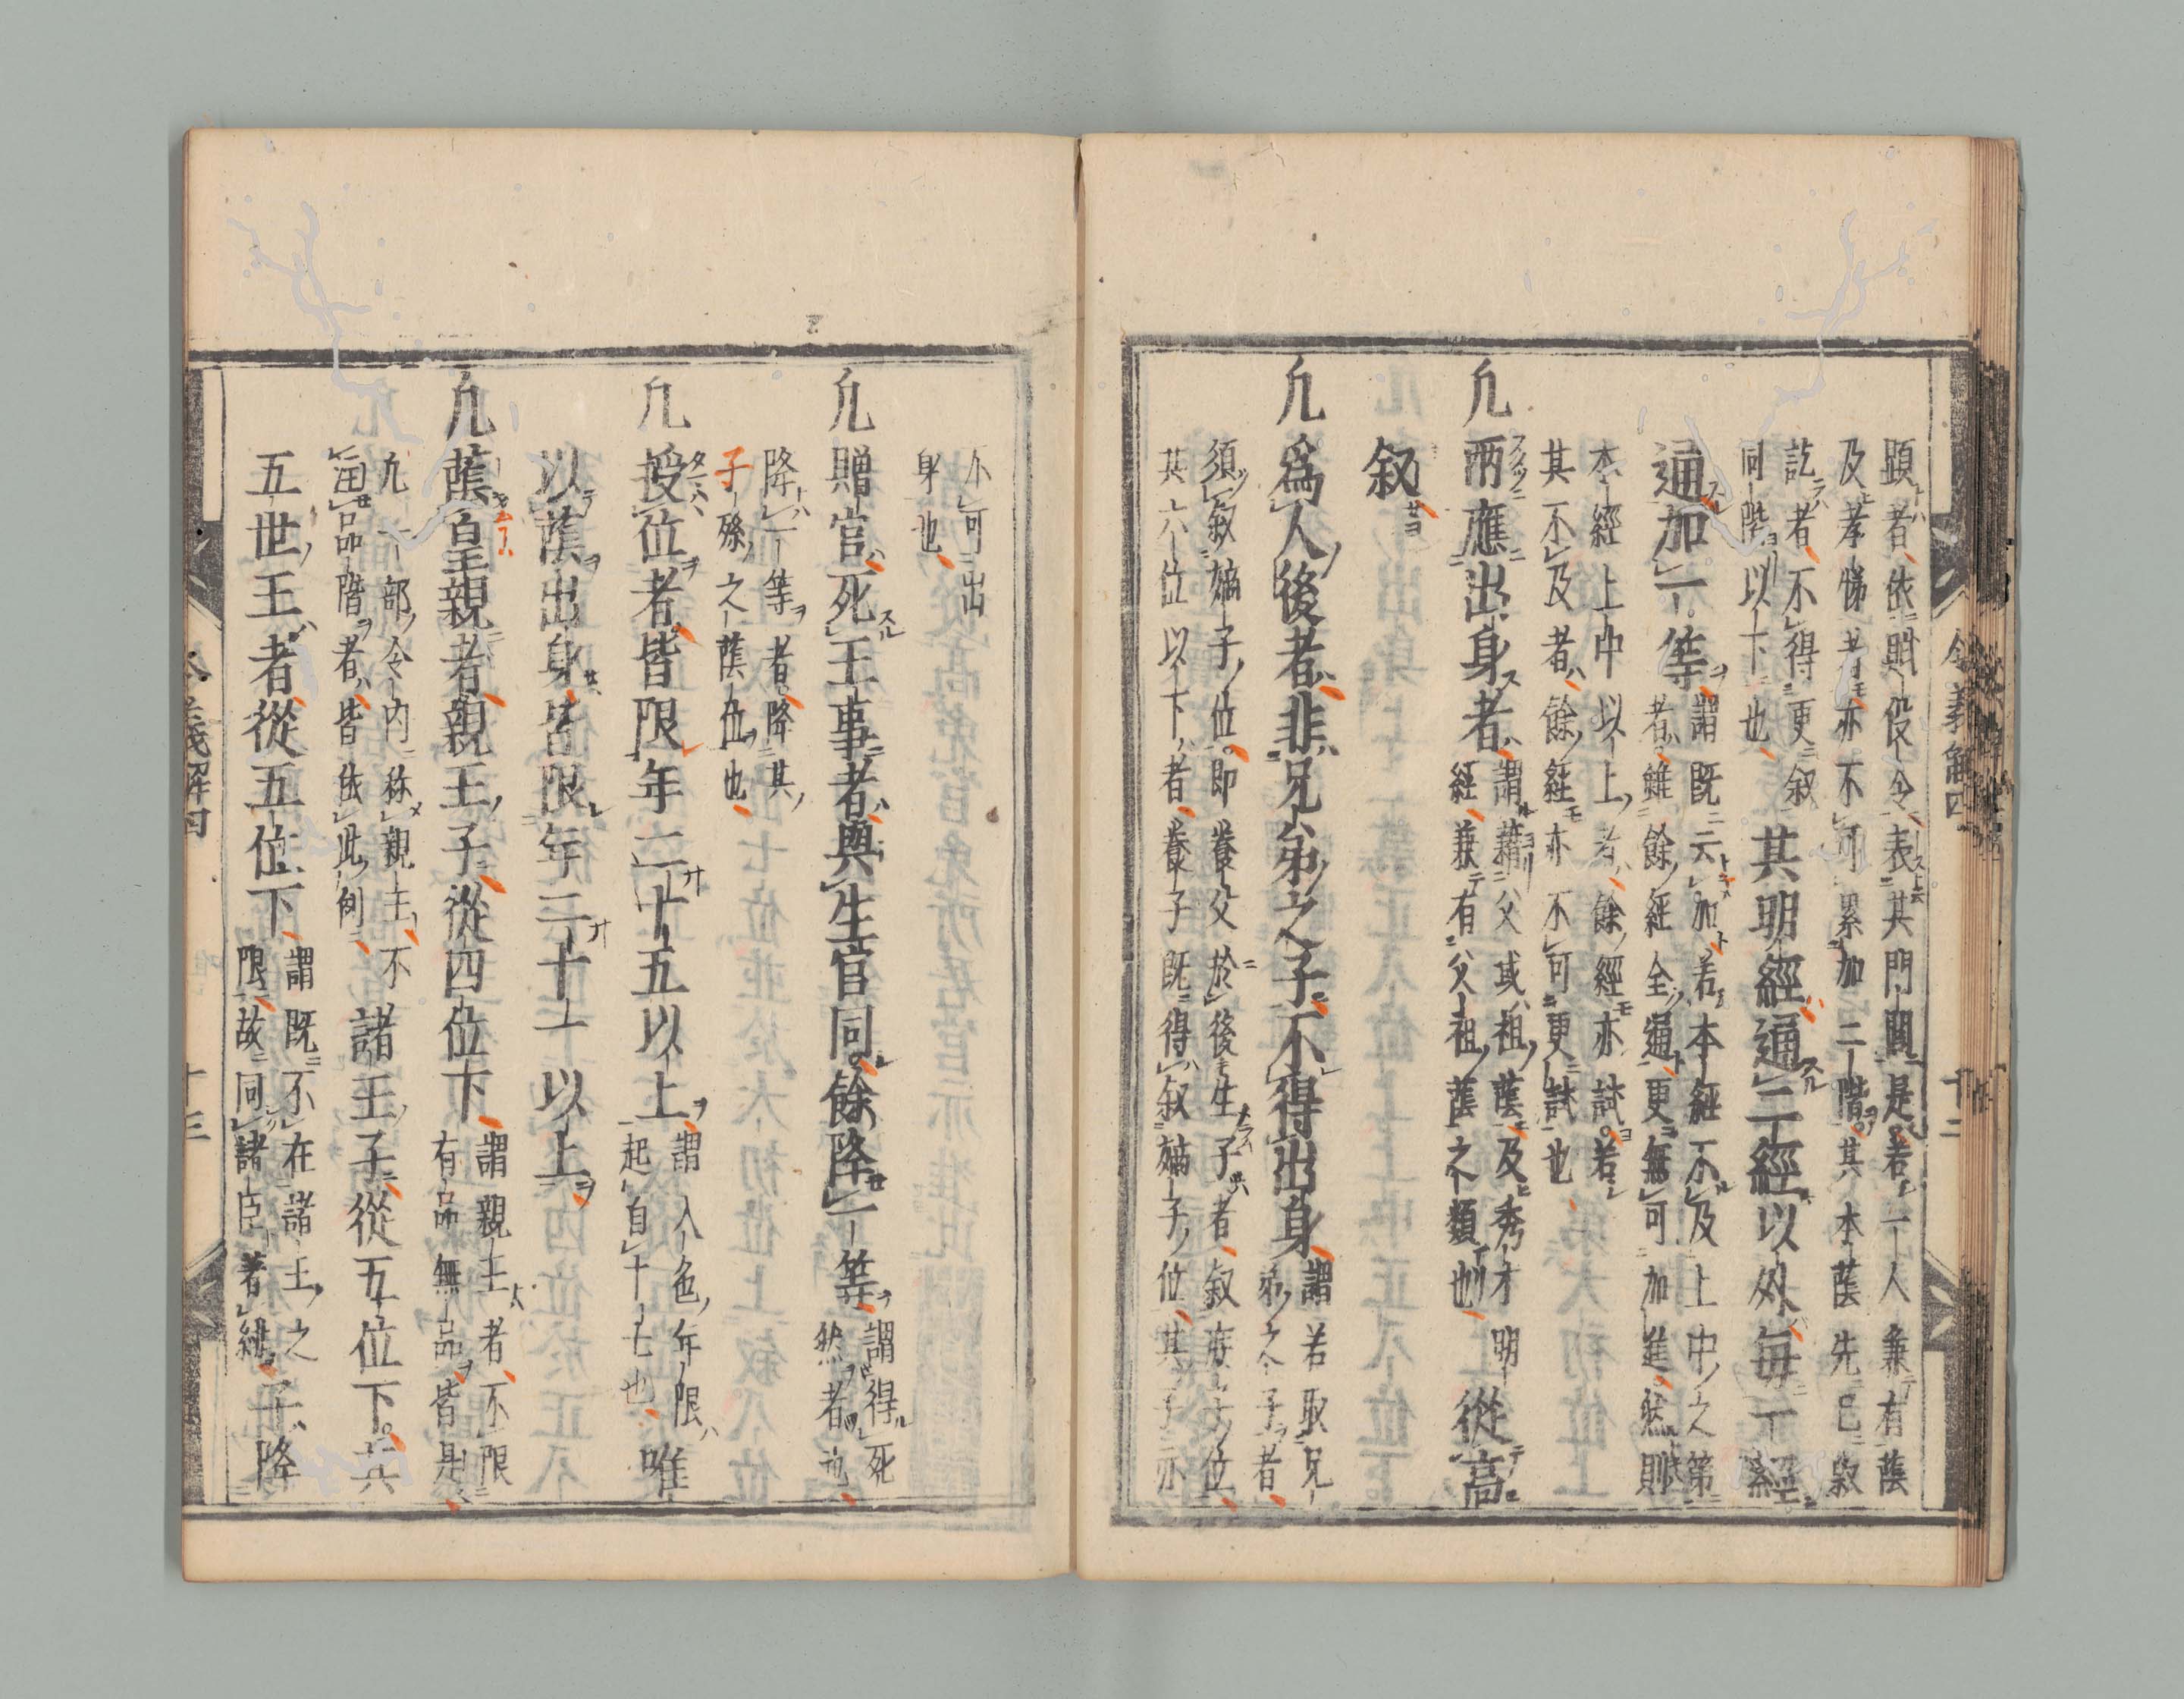 顯者依賦役令表其門閭是若一人兼有蔭
及孝悌者亦不可累加二階其本蔭先已叙
訖者不得更叙
同階以下也
其明經通二經以外每一經
通加一等
謂既云加若本經不及上中之第
者雖餘經全通更無可加進然則
本經上中以上者餘經亦試若
其不及者餘經亦不可更試也
凡兩應出身者
謂藉父或祖蔭及秀才明
經兼有父祖蔭之類也
從高
叙
凡為人後者非兄弟之子不得出身
謂若取兄
弟之子者
須叙嫡子位即養父於後生子者叙庶子位
其六位以下者養子既得叙嫡子位其子亦
令義解四
十二
不可出
身也
凡贈官死王事者與生官同餘降一等
謂得死
然者也
降一等者降其
子孫之蔭位也
凡授位者皆限年二十五以上
謂入色年限
起自十七也
唯
以蔭出身皆限年二十一以上
凡蔭皇親者親王子從四位下
謂親王者不限
有品無品皆是
凡一部令内称親王不
〓品階者皆依此例
諸王子從五位下其
五世王者從五位下
謂既不在諸王之
限故同諸臣著緋
子降
令義解四
十三